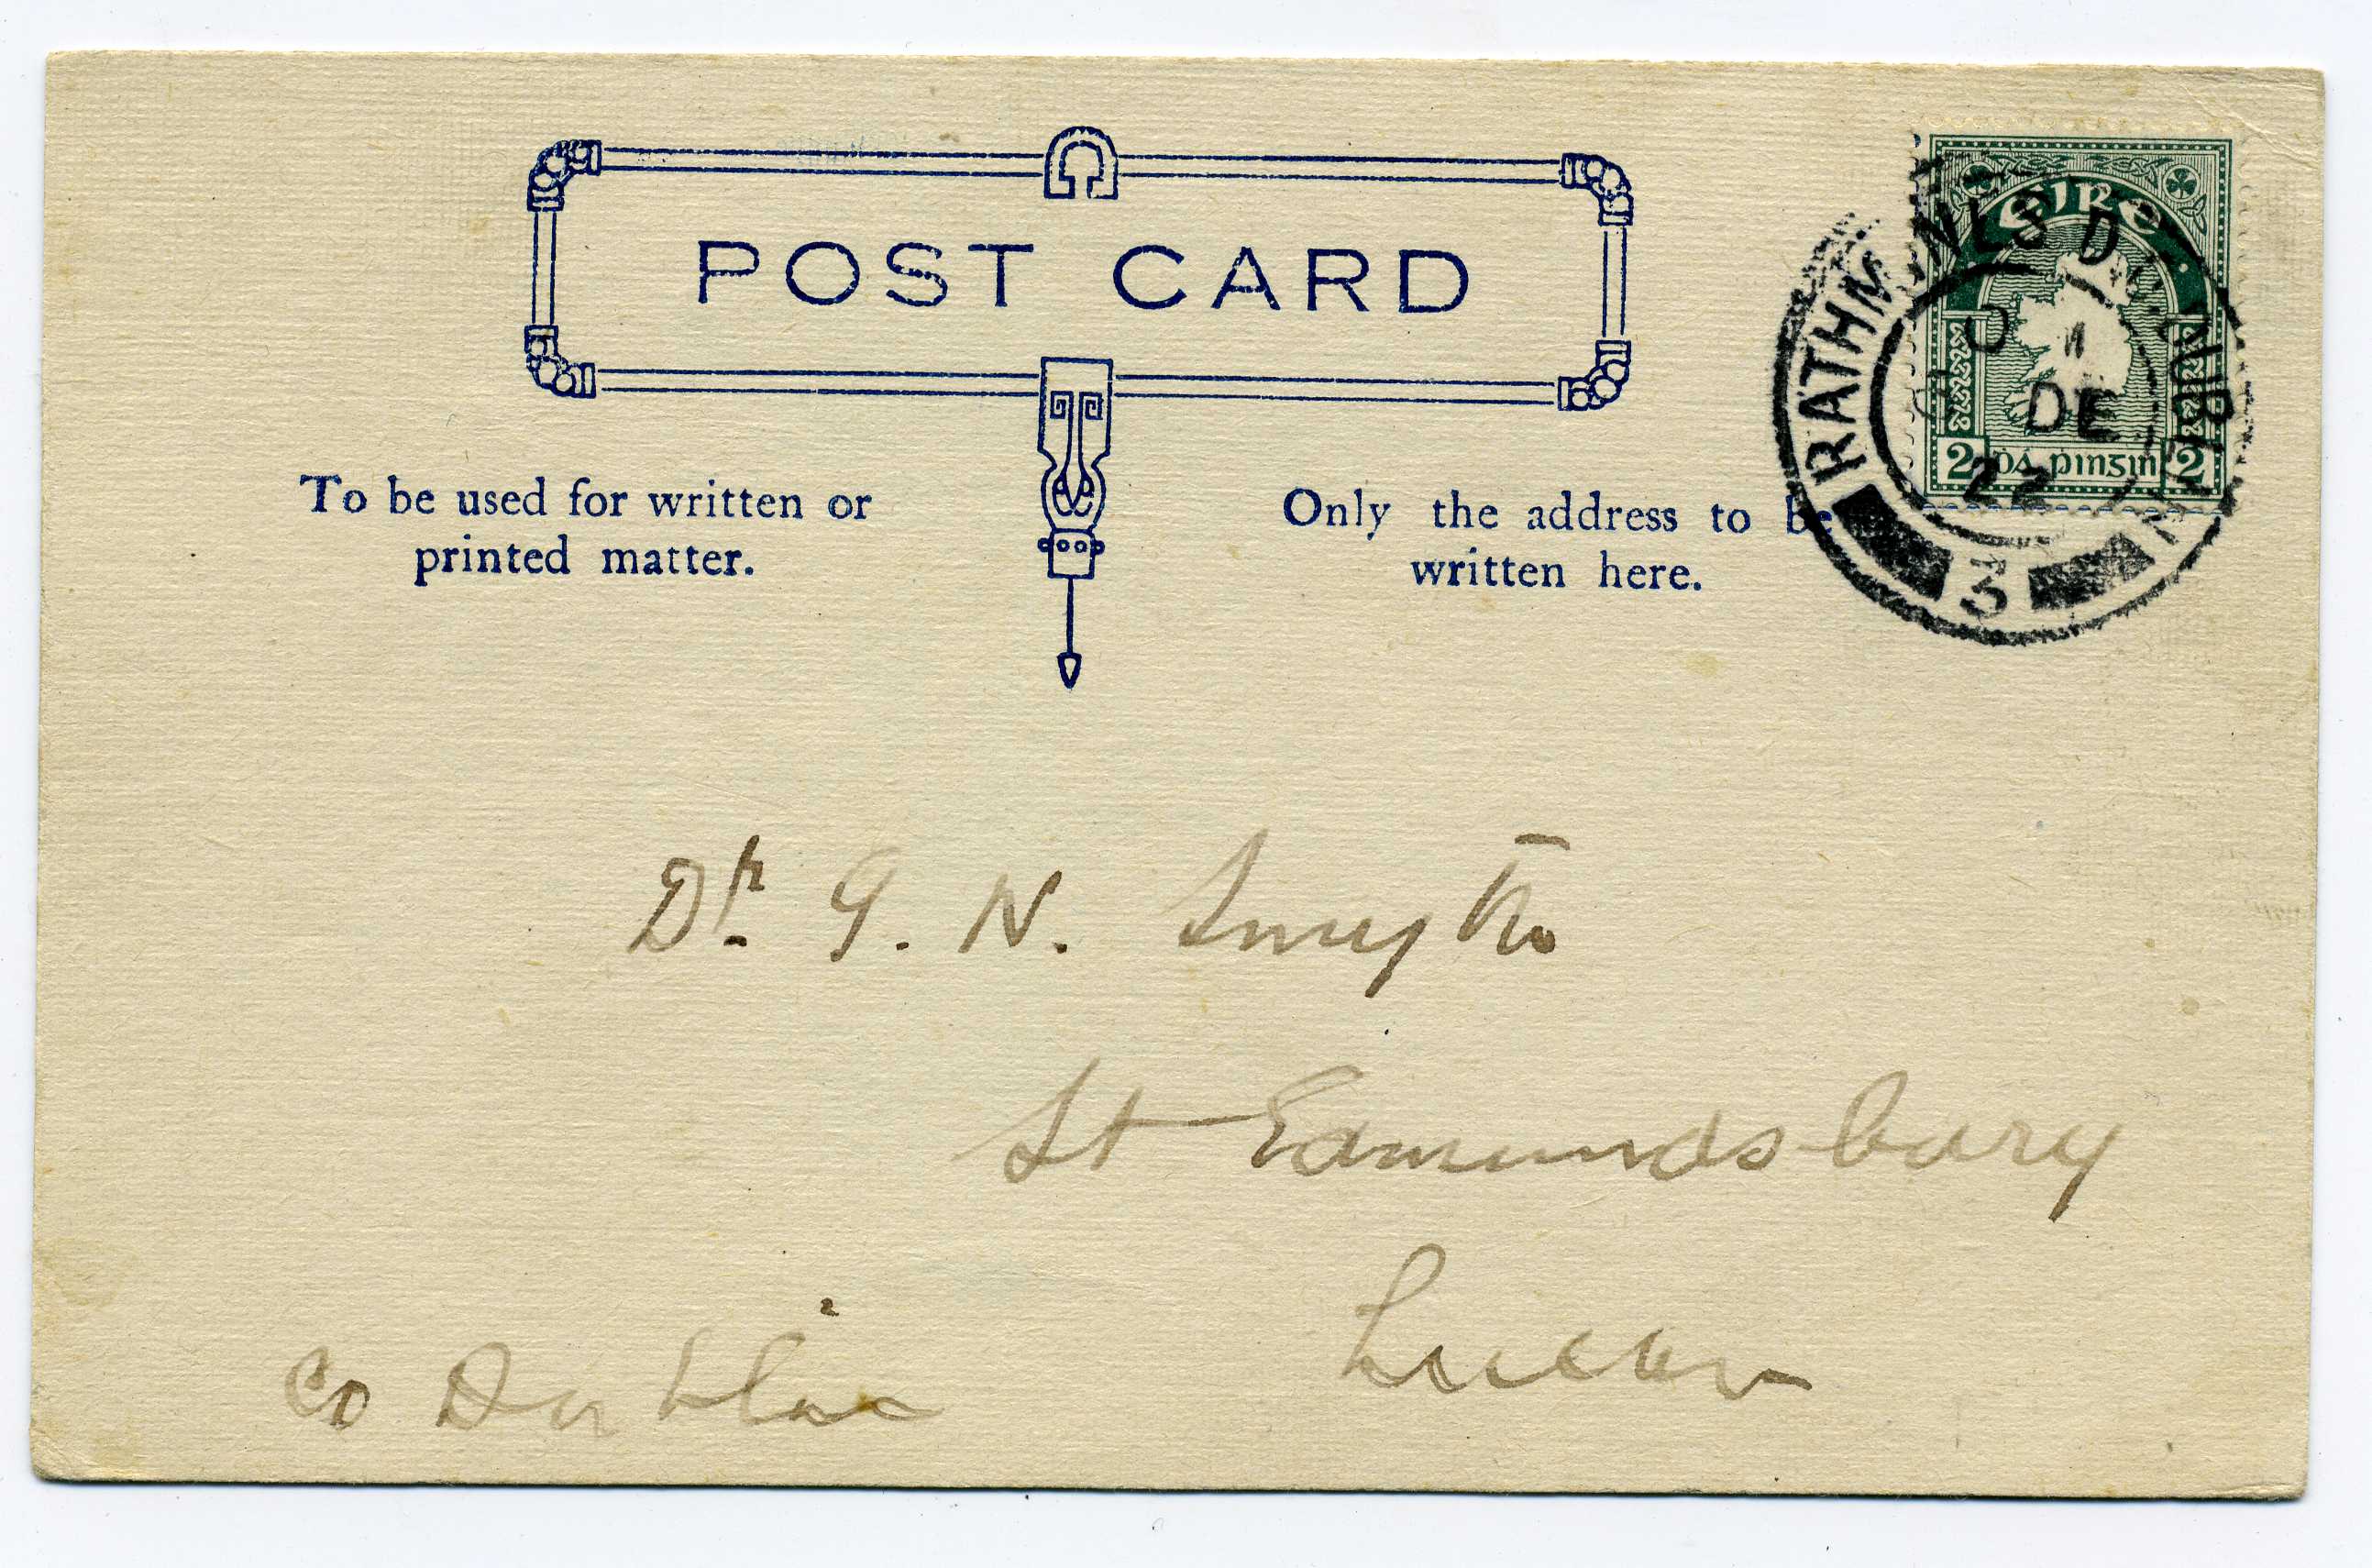 POST CARD
To be used for written or
printed matter.
Only the address to be
written here.
éire
2 Dá pingin 2
RATHMINES DUBLIN
DE
22
3
Dr. G. N. Smyth
St Edmundsbury
Lucan
Co Dublin